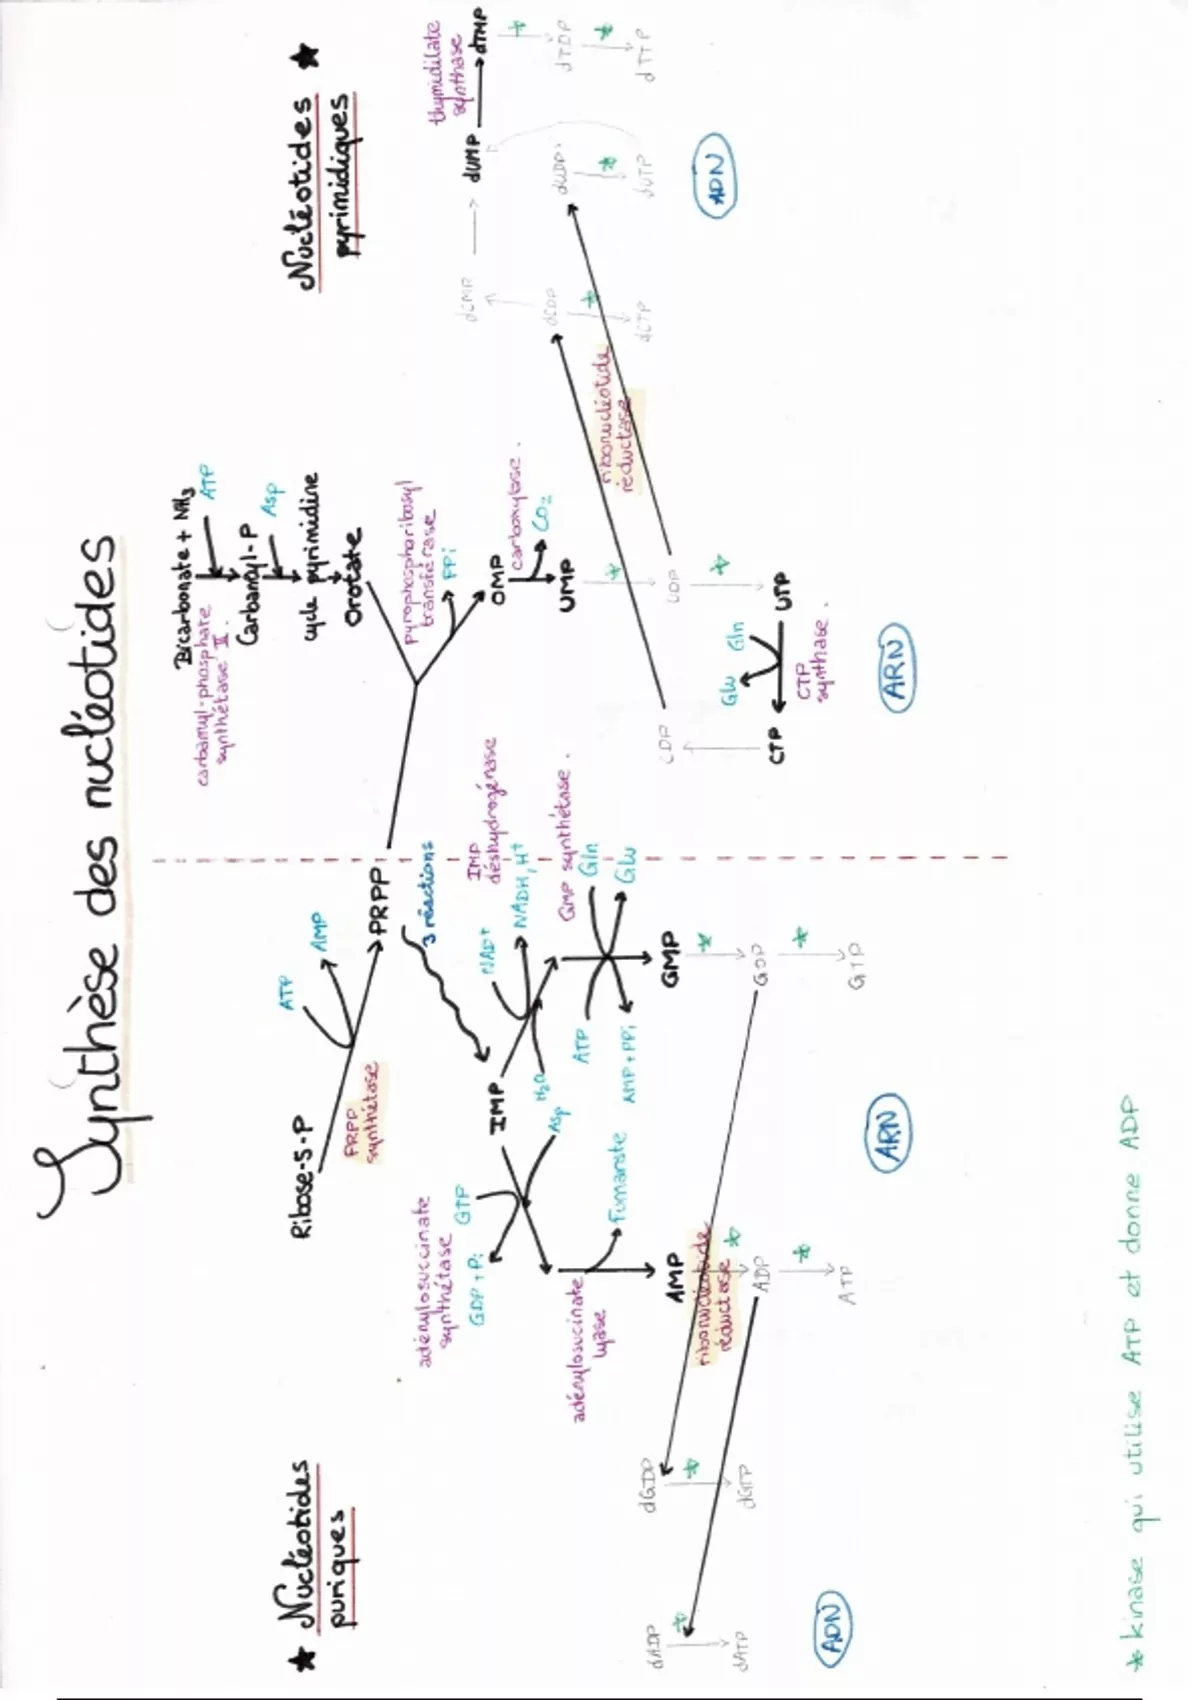 Synthèse des nucléotides
★ Nucléotides
puriques
Ribose-5-P
PRPP
synthétase
ATP
AMP
PRPP
3 réactions
IMP
adénylosuccinate
synthétase
GTP
GDP + Pi
Asp
adénylosuccinate
lyase
Fumarate
AMP
ADP
ATP
IMP
déshydrogénase
NAD+
NADH, H+
H2O
GMP synthétase.
Gln
Glu
ATP
AMP + PPi
GMP
GDP
GTP
ribonucléotide
réductase
dGDP
dGTP
dADP
dATP
ADN
ARN
Nucléotides ★
pyrimidiques
Bicarbonate + NH3
carbamyl-phosphate
synthétase II.
ATP
Carbamoyl-P
Asp
cycle pyrimidine
Orotate
pyrophosphoribosyl
transférase
PPi
OMP
carboxylase.
CO2
UMP
UDP
UTP
Gln
Glu
CTP
synthase.
CTP
CDP
ribonucléotide
réductase
dCMP
dCDP
dCTP
dUMP
dUDP
dUTP
thymidilate
synthase
dTMP
dTDP
dTTP
ARN
ADN
* kinase qui utilise ATP et donne ADP